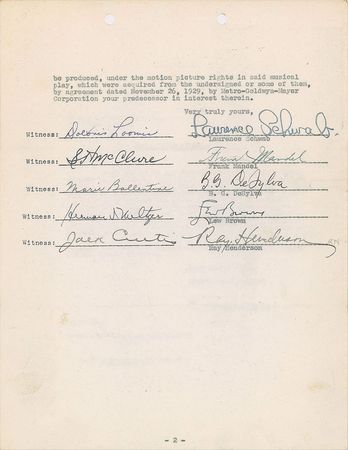 be produced, under the motion picture rights in said musical
play, which were acquired from the undersigned or some of them,
by agreement dated November 26, 1929, by Metro-Goldwyn-Mayer
Corporation your predecessor in interest therein.
Very truly yours,
Witness: Dolores Loomis Laurence Schwab
Laurence Schwab
Witness: McClure Frank Mandel
Frank Mandel
Witness: Marie Ballentine B. G. DeSylva
B. G. DeSylva
Witness: Herman Meltzer Lew Brown
Lew Brown
Witness: Jack Curtis Ray Henderson
Ray Henderson
- 2 -